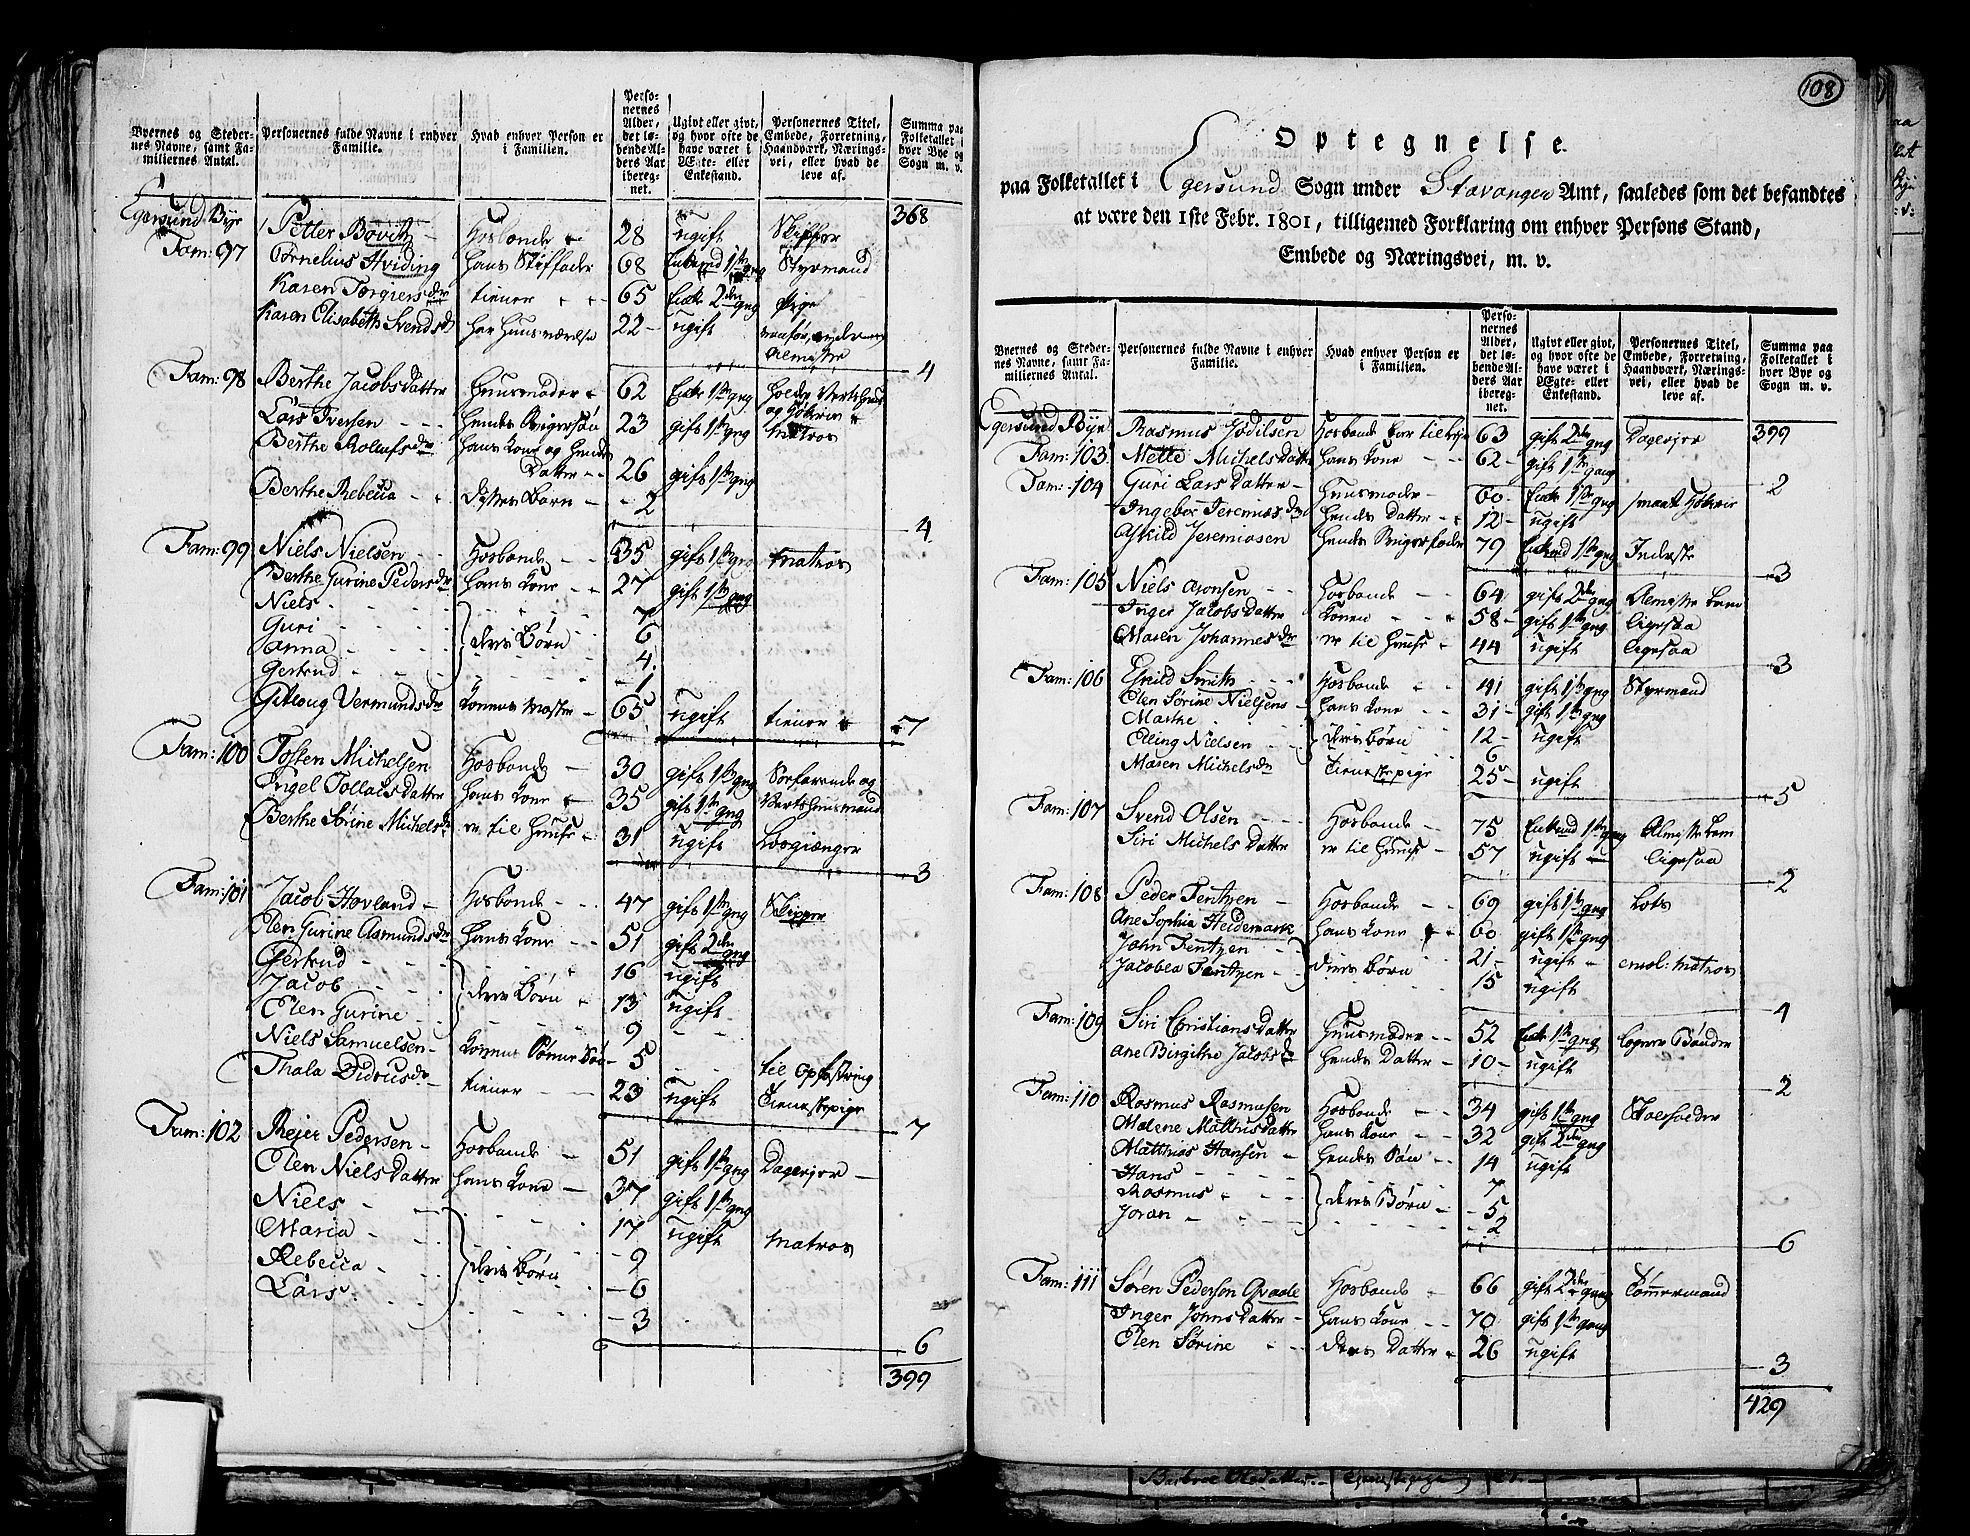 Byernes og Steder- nes Navne, samt Fa- miliernes Antal.
Personernes fulde Navne i enhver Familie.
Hvad enhver Person er i Familien.
Perso- nernes Alder, det lø- bende Al- ders Aar iberegnet.
Ugivt eller givt, og hvor ofte de have været i Ægte- eller Enkestand.
Personernes Titel, Embede, Forretning, Haandværk, Nærings- vei, eller hvad de leve af.
Summa paa Folketallet i hver Bye og Sogn m. v.
Egersund Bye 368
Fam: 97 Petter Bøvitz Hosbonde 28 ugift Skipper
Cornelius Hviding hans Stiffader 68 Enkemd 1ste gng Styrmand
Karen Torgiersdr tiener 65 Enke 2den gng pige
Karen Elisabeth Svendsdr har Huusværelse 22 ugift
4
Fam: 98 Berthe Jacobsdatter Huusmoder 62 Enke 1ste gng
Lars Iversen 23 gift 1ste gng matros
Berthe Rolufsdr hans kone og hendes Datter 26 gift 1ste gng
Berthe Rebecca disses Barn 2
4
Fam: 99 Niels Nielsen Hosbonde 35 gift 1ste gng matros
Berthe Gurine Pedersdr hans kone 27 gift 1ste gng
Niels 7
Guri 6
Anna deres Børn 4
Gertrud 1
Gitloug Vermundsdr konens Moster 65 ugift tiener
7
Fam: 100 Tosten Michelsen Hosbonde 30 gift 1ste gng Søefarende og
Ingel Tollacsdatter hans kone 35 gift 1ste gng Vertshuusmand
Berthe Sørine Michelsdr er til Huuse 31 ugift Løsgiænger
3
Fam: 101 Jacob Hovland Hosbonde 47 gift 1ste gng Skipper
Elen Gurine Asmundsdr hans kone 51 gift 2den gng
Gertrud 16 ugift
Jacob deres Børn 13 ugift
Elen Gurine 9
Niels Samuelsen konens Sønne Søn 5 til Opfostring
Thala Didriksdr tiener 23 ugift Tienestepige
7
Fam: 102 Rejer Pedersen Hosbonde 51 gift 1ste gng Dagleyer
Elen Nielsdatter hans kone 37 gift 1ste gng
Niels 17 ugift matros
Maria 9
Rebecca deres Børn 6
Lars 3
6
399
108
Optegnelse
paa Folketallet i Egersund Sogn under Stavanger Amt, saaledes som det befandtes
at være den 1ste Febr. 1801, tilligemed Forklaring om enhver Persons Stand,
Embede og Næringsvei, m. v.
Byernes og Steder- nes Navne, samt Fa- miliernes Antal.
Personernes fulde Navne i enhver Familie.
Hvad enhver Person er i Familien.
Perso- nernes Alder, det lø- bende Al- ders Aar ibereg- net.
Ugivt eller givt, og hvor ofte de have været i Ægte- eller Enkestand.
Personernes Titel, Embede, Forretning, Haandværk, Nærings- vei, eller hvad de leve af.
Summa paa Folketallet i hver Bye og Sogn m. v.
Egersund Bye Rasmus Jodilsen Hosbonde 63 gift 2den gng 399
Fam: 103 Mette Michelsdatter hans kone 62 gift 1ste gang
2
Fam: 104 Guri Larsdatter Huusmoder 60 Enke 1ste gng
Ingebor Jeremiæsdr hendes datter 12 ugift
Jeremiasen hendes 79 Enkemd 1ste gng Inderste
3
Fam: 105 Niels Hosbonde 64 gift 2den gng Almisse Lem
Inger Jacobsdatter konen 58 gift 1ste gng ligesaa
Maren Johannesdr er til Huuse 44 ugift ligesaa
3
Fam: 106 Smith Hosbonde 41 gift 1ste gng Styrmand
Elen Sørine Nielsens hans kone 31 gift 1ste gng
Marthe deres børn 12 ugift
Elling Nielsen 6
Maren Michelsdr Tienestepige 25 ugift
5
Fam: 107 Svend Olsen Hosbonde 75 Enkemd 1ste gng Almisse Lem
Siri Michelsdatter er til Huuse 57 ugift ligesaa
2
Fam: 108 Peder Fentzen Hosbonde 69 gift 1ste gng Lots
Ane Sophia Heidemark hans kone 60 gift 1ste gng
John Fentzen deres børn 21 ugift enrol: matros
Jacobea Fentzen 15 ugift
4
Fam: 109 Siri Christiansdatter Huusmoder 52 Enke 1ste gng
Ane Birgithe Jacobsdr hendes Datter 10 ugift
2
Fam: 110 Rasmus Rasmusen Hosbonde 34 gift 1ste gng
Malene Mathiusdatter hans kone 32 gift 2den gng
Matthias Hansen hendes Søn 14 ugift
Hans 7
Rasmus deres Børn 5
Joran 2
6
Fam: 111 Søren Pederson Qvaale Hosbonde 66 gift 2den gang Tømmermand
Inger Johnsdatter hans kone 70 gift 1ste gang
Elen Sørine deres datter 26 ugift
3
429